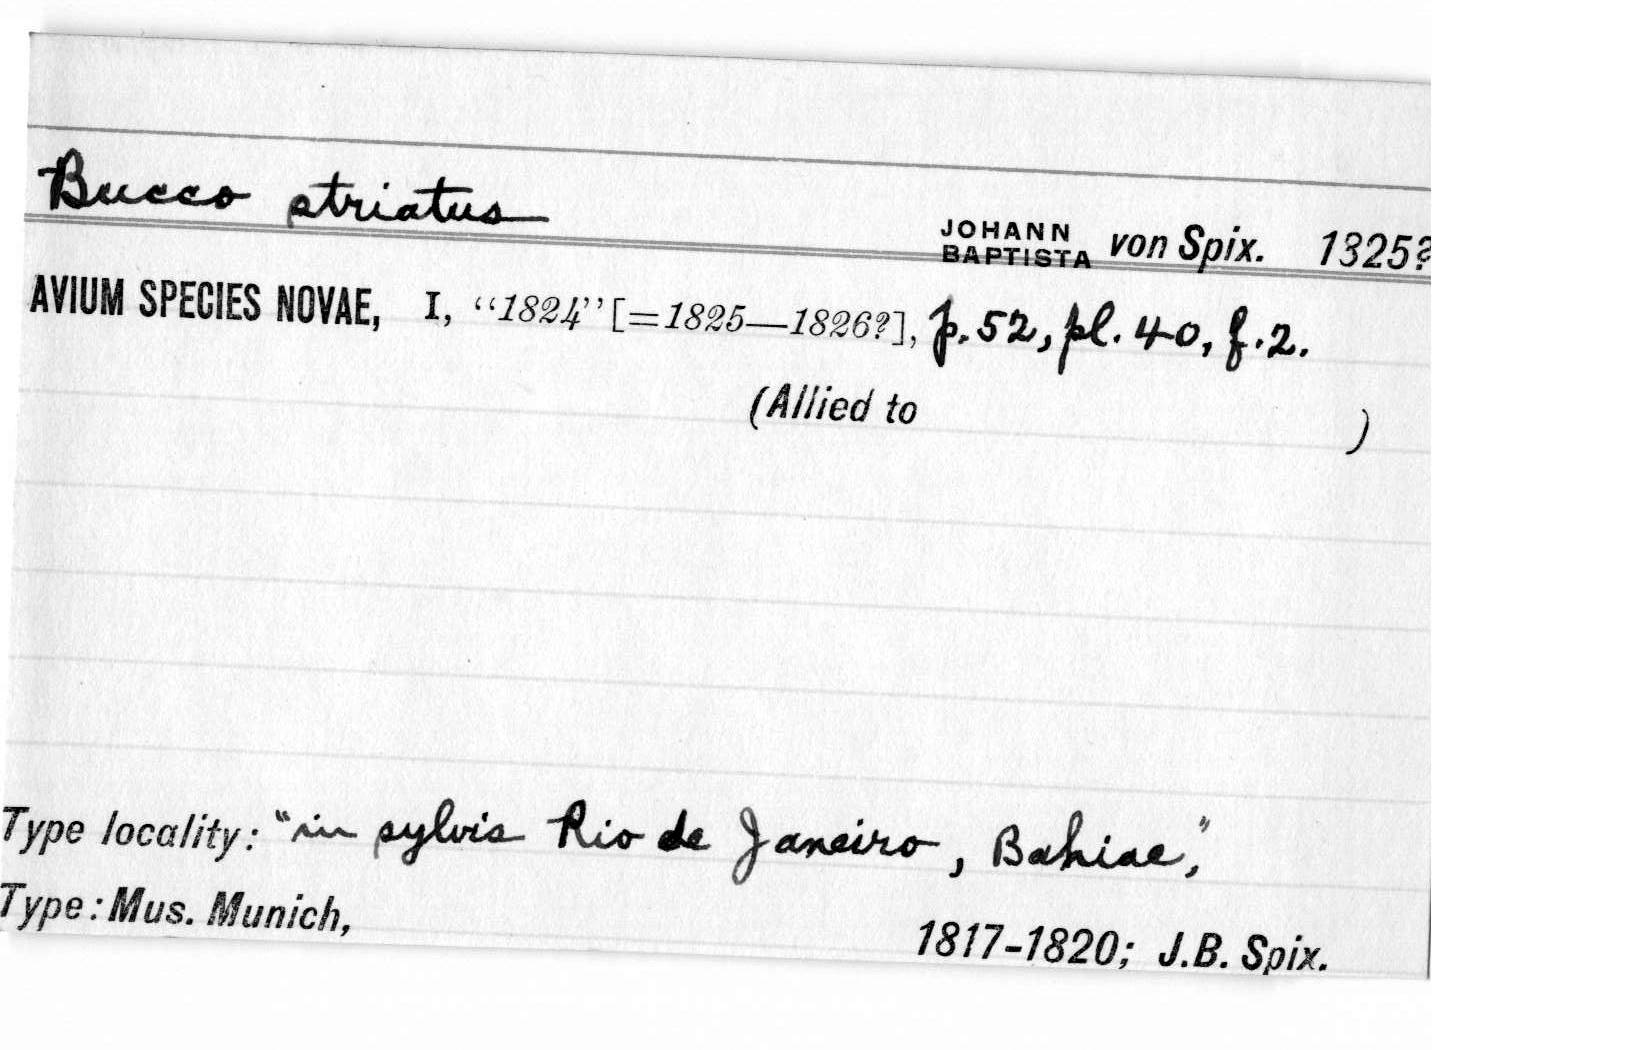 Bucco striatus
JOHANN BAPTISTA von Spix. 1825?
AVIUM SPECIES NOVAE, I, “1824” [=1825—1826?], p. 52, pl. 40, f. 2.
(Allied to )
Type locality: "in sylvis Rio de Janeiro, Bahiae,"
Type: Mus. Munich, 1817-1820; J.B. Spix.